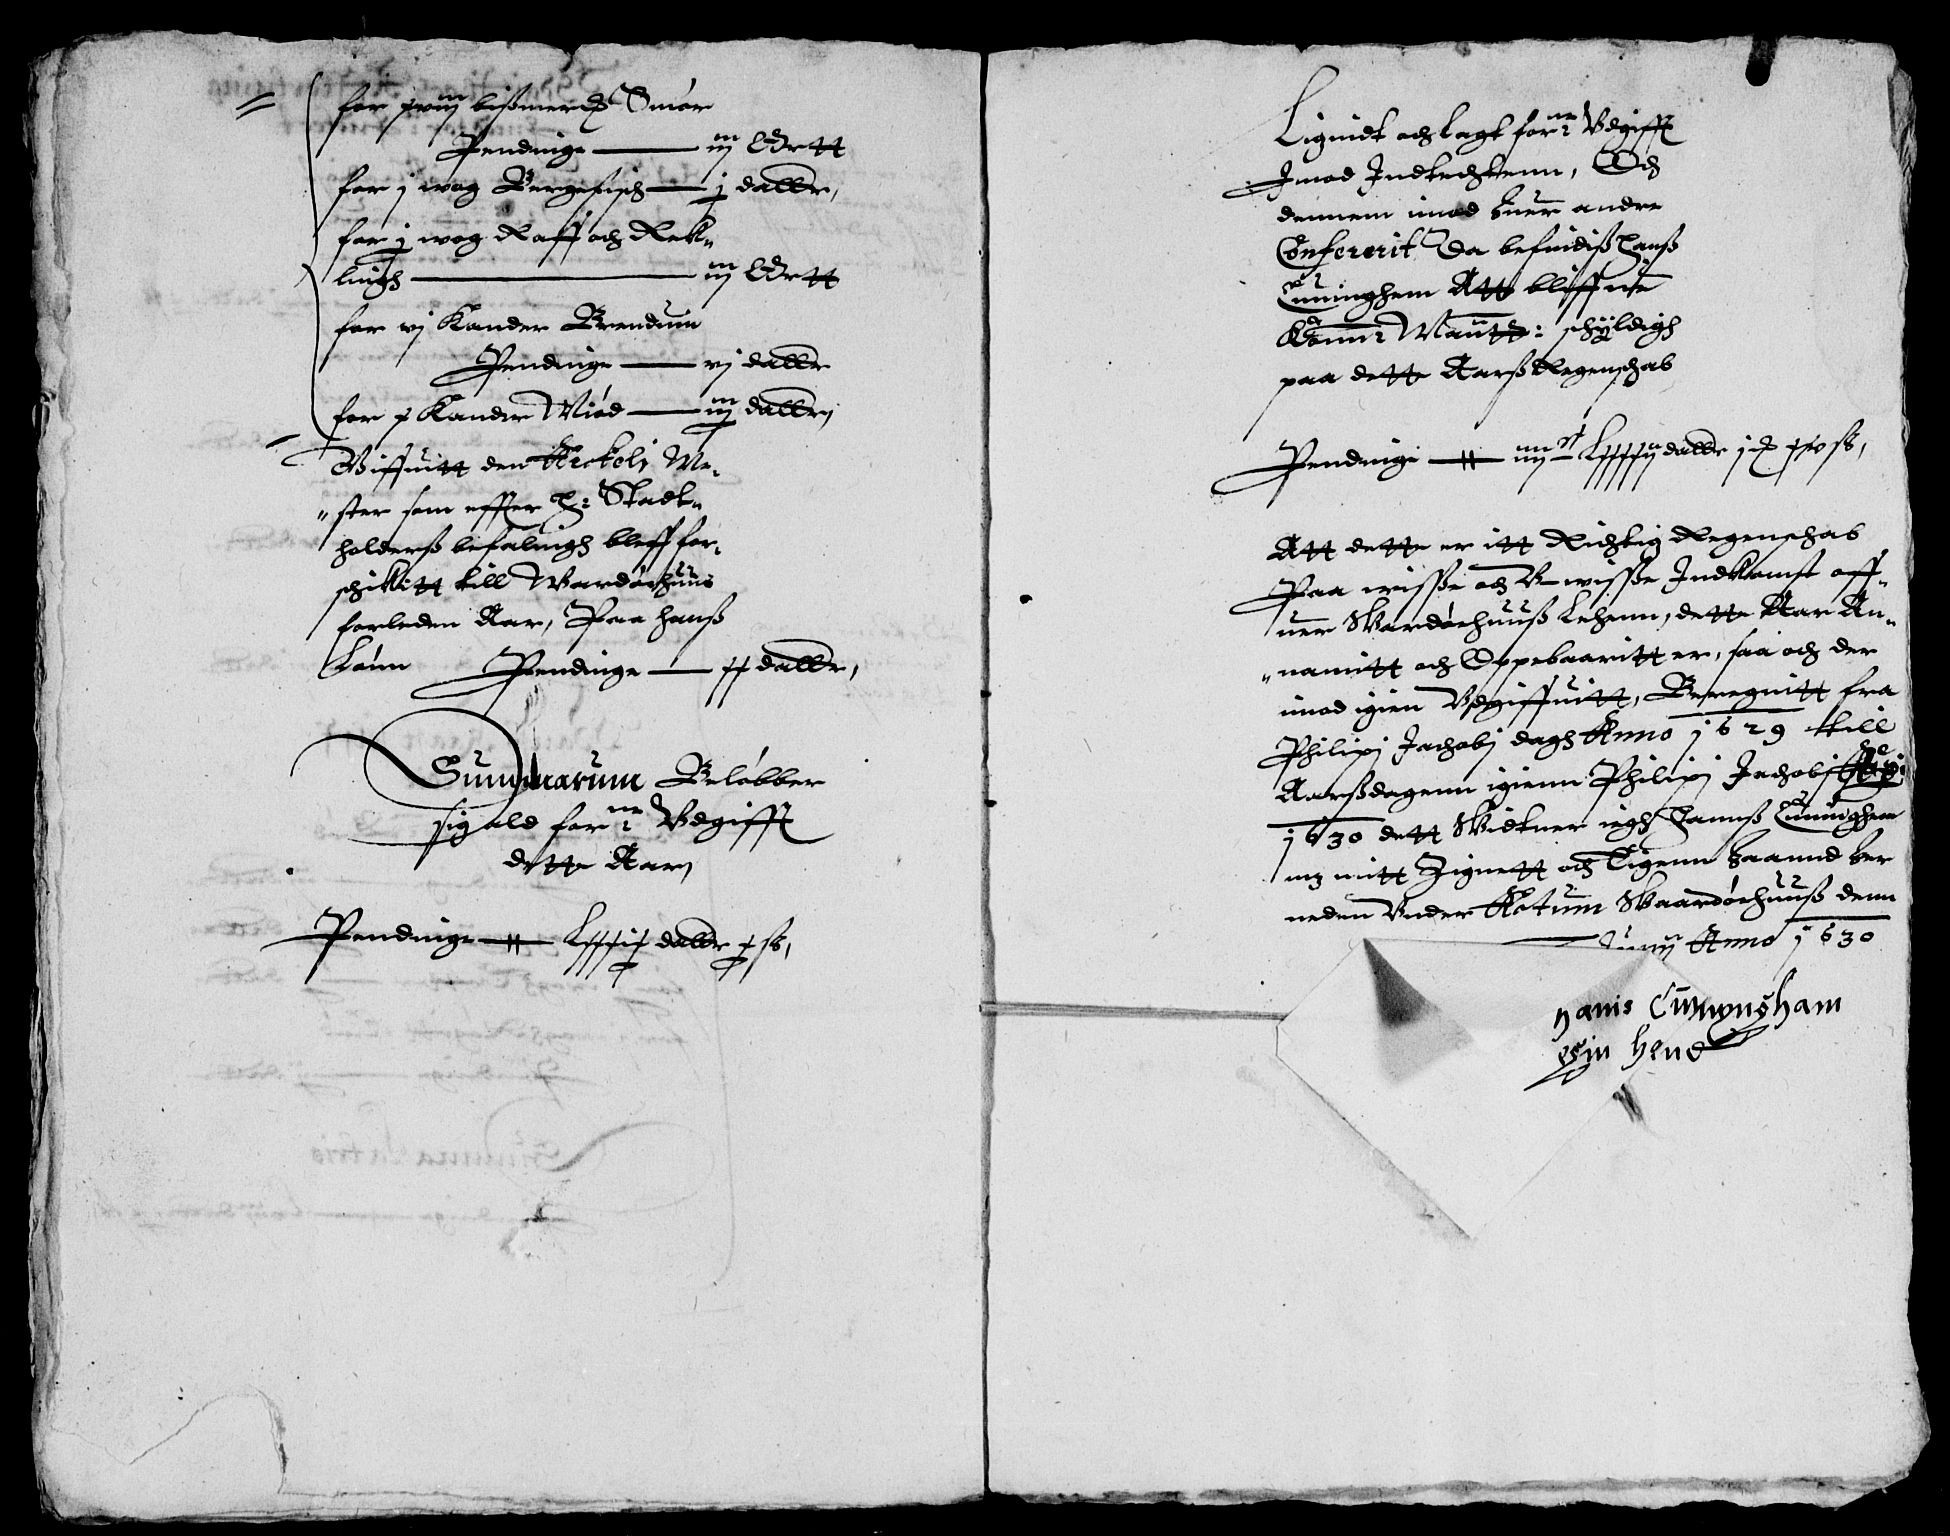 for xviij bißmerd Smør
Pendinge — iij Ortt
for j wog Bergefisch — j daller,
for j wog Raff och Rek-
lingh — iij Ortt
for vj Kander Brendum
Pendinge — vj daller
for x Kander Miød — iij daller,
Giffuitt den Arckeli Me-
ster som effter H: Stadt-
holderß befalingh bleff for-
schikitt till Wardøehuus
forleden Aar, Paa hanß
Lønn Pendinge — xx daller,
Summarum Beløbber
sig ald forne Vdgifft
dette Aar,
Pendinge — Lxxxix daller x ß,
Liquidt och lagt forne Vdgifft
Imod Indtechtenn, Och
dennem imod huer andre
Confererit Da befindiß Hanß
Cuninghem Att bliffue
Konn: Maytt: schÿldigh
paa dette Aarß Regenschab
Pendinge — daller ß,
Att dette er itt Richtig Regenschab
Paa wisse och V-wisse Indkomst aff-
uer Wardøehuuß Lehenn, dette Aar An-
namitt och Oppebaaritt er, saa och der
imod igien Vdgiffuitt, Beregnitt fra
Philipj Jachobj dagh Anno 1629 till
Aarßdagenn igienn Philipj Jachobj
1630 dett Widtner iegh Hannß Cuninghem
mz mitt Zignett och Eigenn haannd her
neden Vnder Actum Waardøehuuß denn
Junij Anno 1630
Hanis Cunnyngham
egin hend